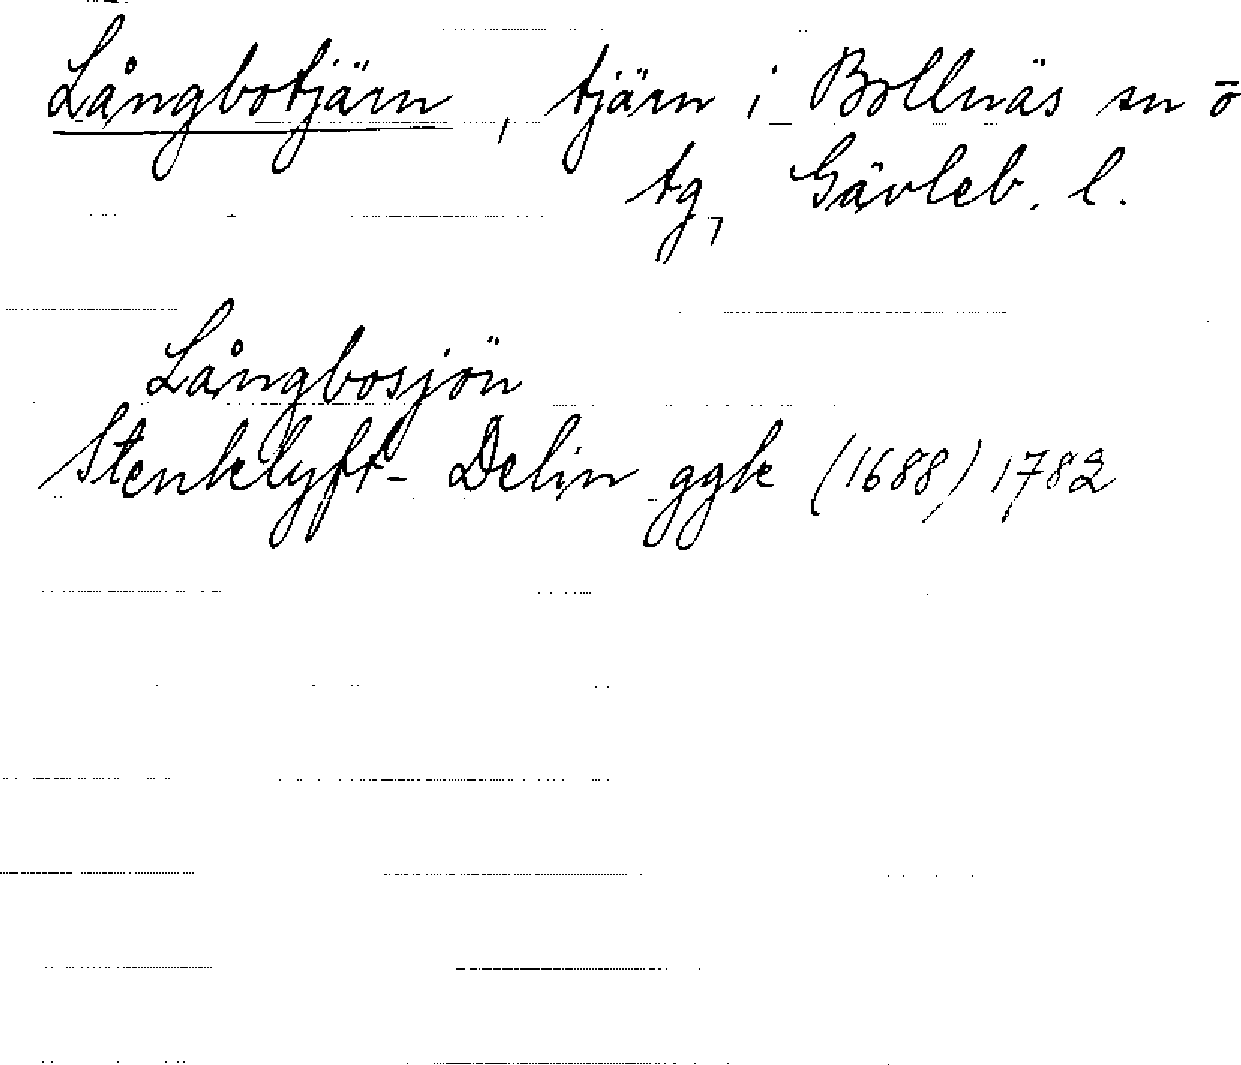 Långbotjärn, tjärn i Bollnäs sn o
tg, Gävleb. l.
Långbosjön
Stenklyft- Delin ggk (1688) 1782